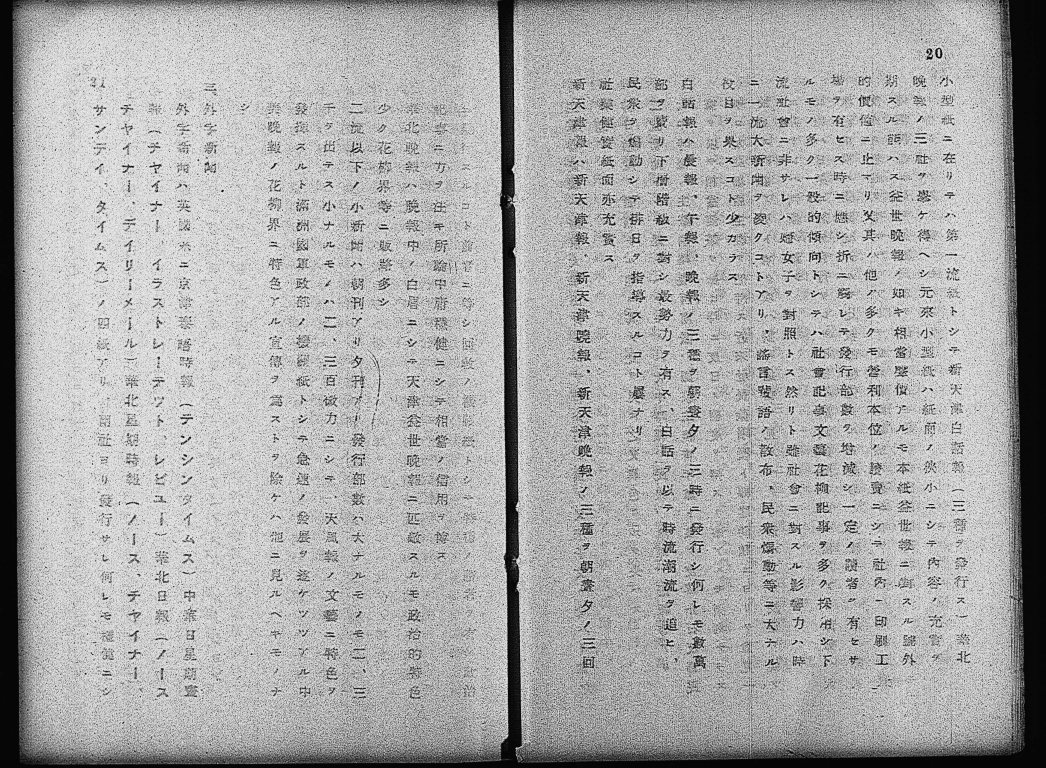 20
小型紙ニ在リテハ第一流紙トシテ新天津白話報(三種ヲ發行ス)華北
晩報ノ三社ヲ擧ケ得ヘシ元來小型紙ハ紙面ノ狹小ニシテ內容ノ充實ヲ
期スル譯ハス益世晩報ノ如キ相當壁價アルモ本紙益世報ニ對スル號外
的價値ニ止マリ又其ノ他ノ多クモ營利本位ノ讀賣ニシテ社內ニ印刷工
場ヲ有セス時ニ應シ折ニ觸レテ發行部數ヲ增減シ一定ノ讀者ヲ有セサ
ルモノ多ク一般的傾向トシテハ社會記事文藝花柳記事ヲ多ク採ルシ下
流社會ニ非サレハ婦女子ヲ對照トス然リト雖社會ニ對スル影響力ハ時
ニ一流大新聞ヲ凌クコトアリ、謠言蜚語ノ散布、民衆煽動等ニ大テル
役目ヲ果スコト少カラス
白話報ハ晨報、午報、晩報ノ三種ヲ朝晝夕ノ三時ニ發行シ何レモ數萬
部ヲ賣リ下層階級ニ對シ最勢力ヲ有ス、白話ヲ以テ時流潮流ヲ追ヒ、
民衆ヲ煽動シテ排日ヲ指導スルコト屢ナリ
社業健實紙面亦充實ス
新天津報ハ新天津報、新天津晩報、新天津晚報ノ三種ヲ朝晝夕ノ三回
21
記事ニ力ヲ注キ所論中庸穩健ニシテ相當ノ信用ヲ博ス
華北晩報ハ晩報中ノ白眉ニシテ天津益世晩報ニ匹敵スルモ政治的特色
少ク花柳界等ニ販路多シ
二流以下ノ小新聞ハ朝刊アリ夕刊アリ發行部數ハ大ナルモノモ二、三
千ヲ出テス小ナルモノハ二、三百破力ニシテ、天風報ノ文藝ニ特色ヲ
發揮スルト滿洲國軍政部ノ機關紙トシテ急速ノ發展ヲ遂ケツツアル中
美晩報ノ花柳界ニ特色アル宣傳ヲ爲ストヲ除ケハ他ニ見ルヘキモノナ
シ
三、外字新聞
外字新聞ハ英國系ニ京津泰晤時報(テンシンタイムス)中華日星期畫
報(チヤイナー、イラストレーテツト、レビユー)華北日報(ノース
チヤイナー、デイリーメール)華北星期時報(ノース、チヤイナー、
サンデイ、タイムス)ノ四紙アリ、兩社ヨリ發行サレ何レモ穩健ニシ